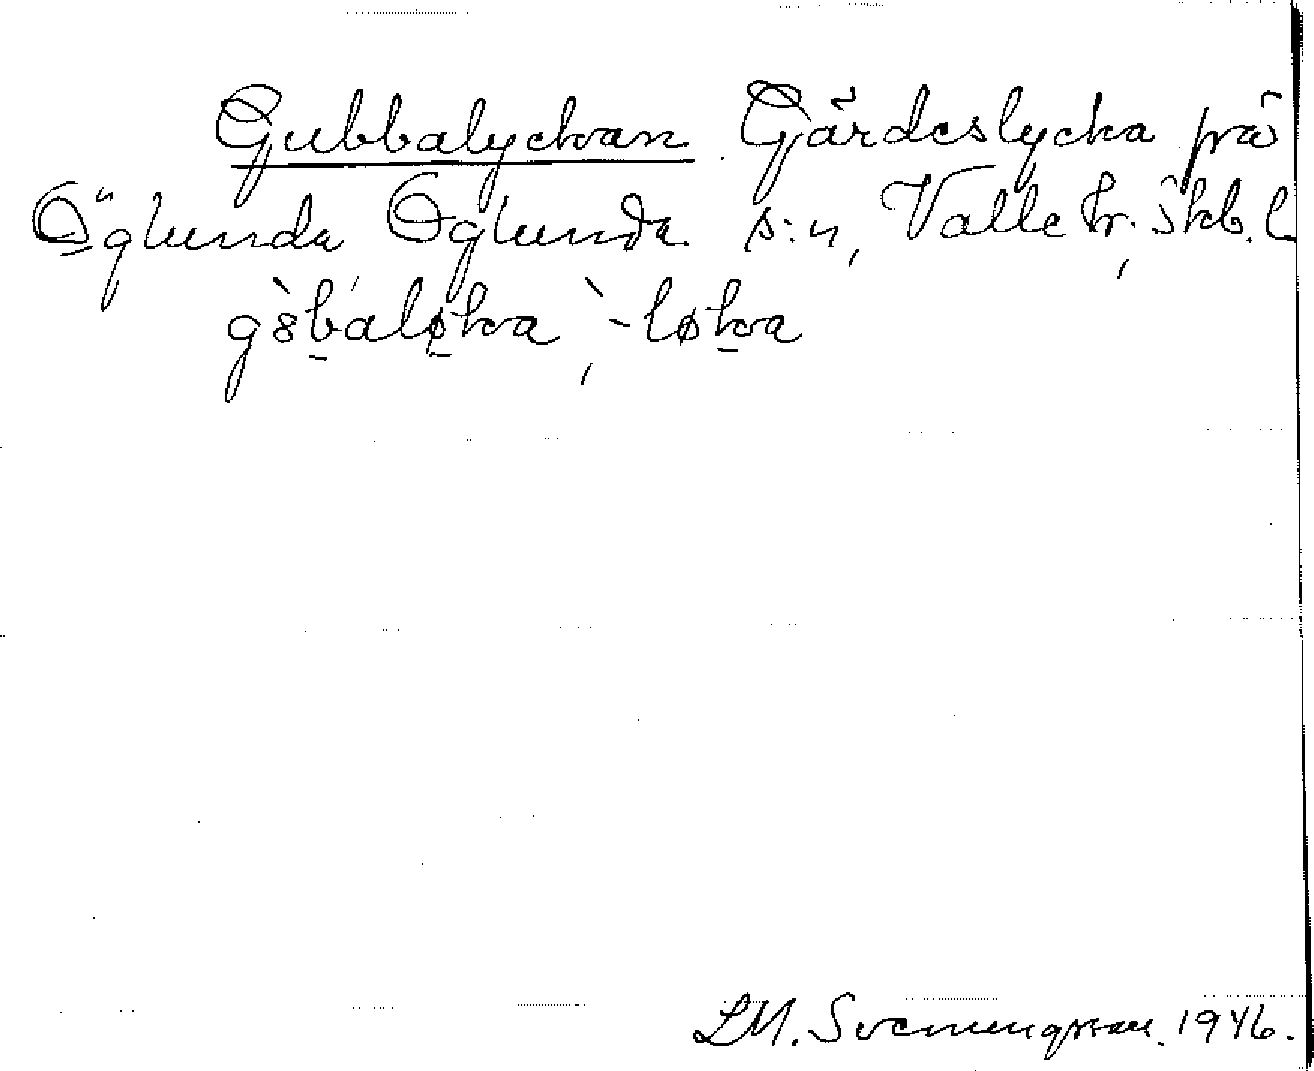 Gubbalyckan. Gärdeslycka på
Öglunda Öglunda s:n, Valle hr, Skb. l
gȣ̀balø̱ka, `-løka
L.M. Svenungsson. 1946.